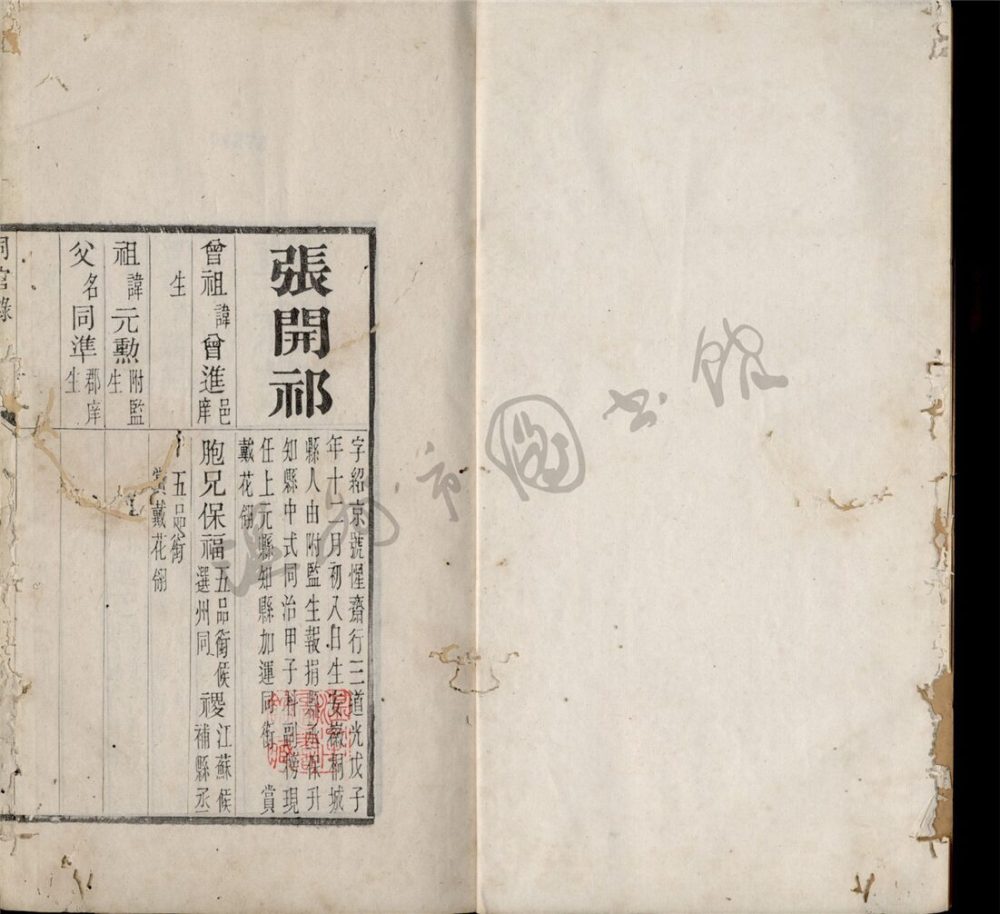 張開祁
字紹京號惺齋行三道光戊子
年十二月初八日生安徽桐城
縣人由附監生報捐縣丞保升
知縣中式同治甲子科副榜現
任上元縣知縣加運同銜 賞
戴花翎
曾祖諱曾進邑庠
生
祖諱元勲附監生
父名同準郡庠生
胞兄保福五品銜候選州同 禝江蘇候補縣丞
五品銜
賞戴花翎
同官錄
市圖書館